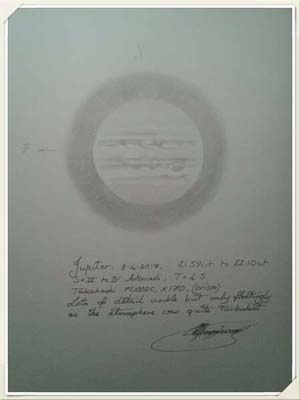 N
F
Jupiter. 8-4-2017. 21.59ut to 22.10ut
S = III to IV Antoniadi, T = 4.5
Takahashi FC100DC, X170, (prism)
Lots of detail visible but only fleetingly
as the atmosphere was quite turbulent